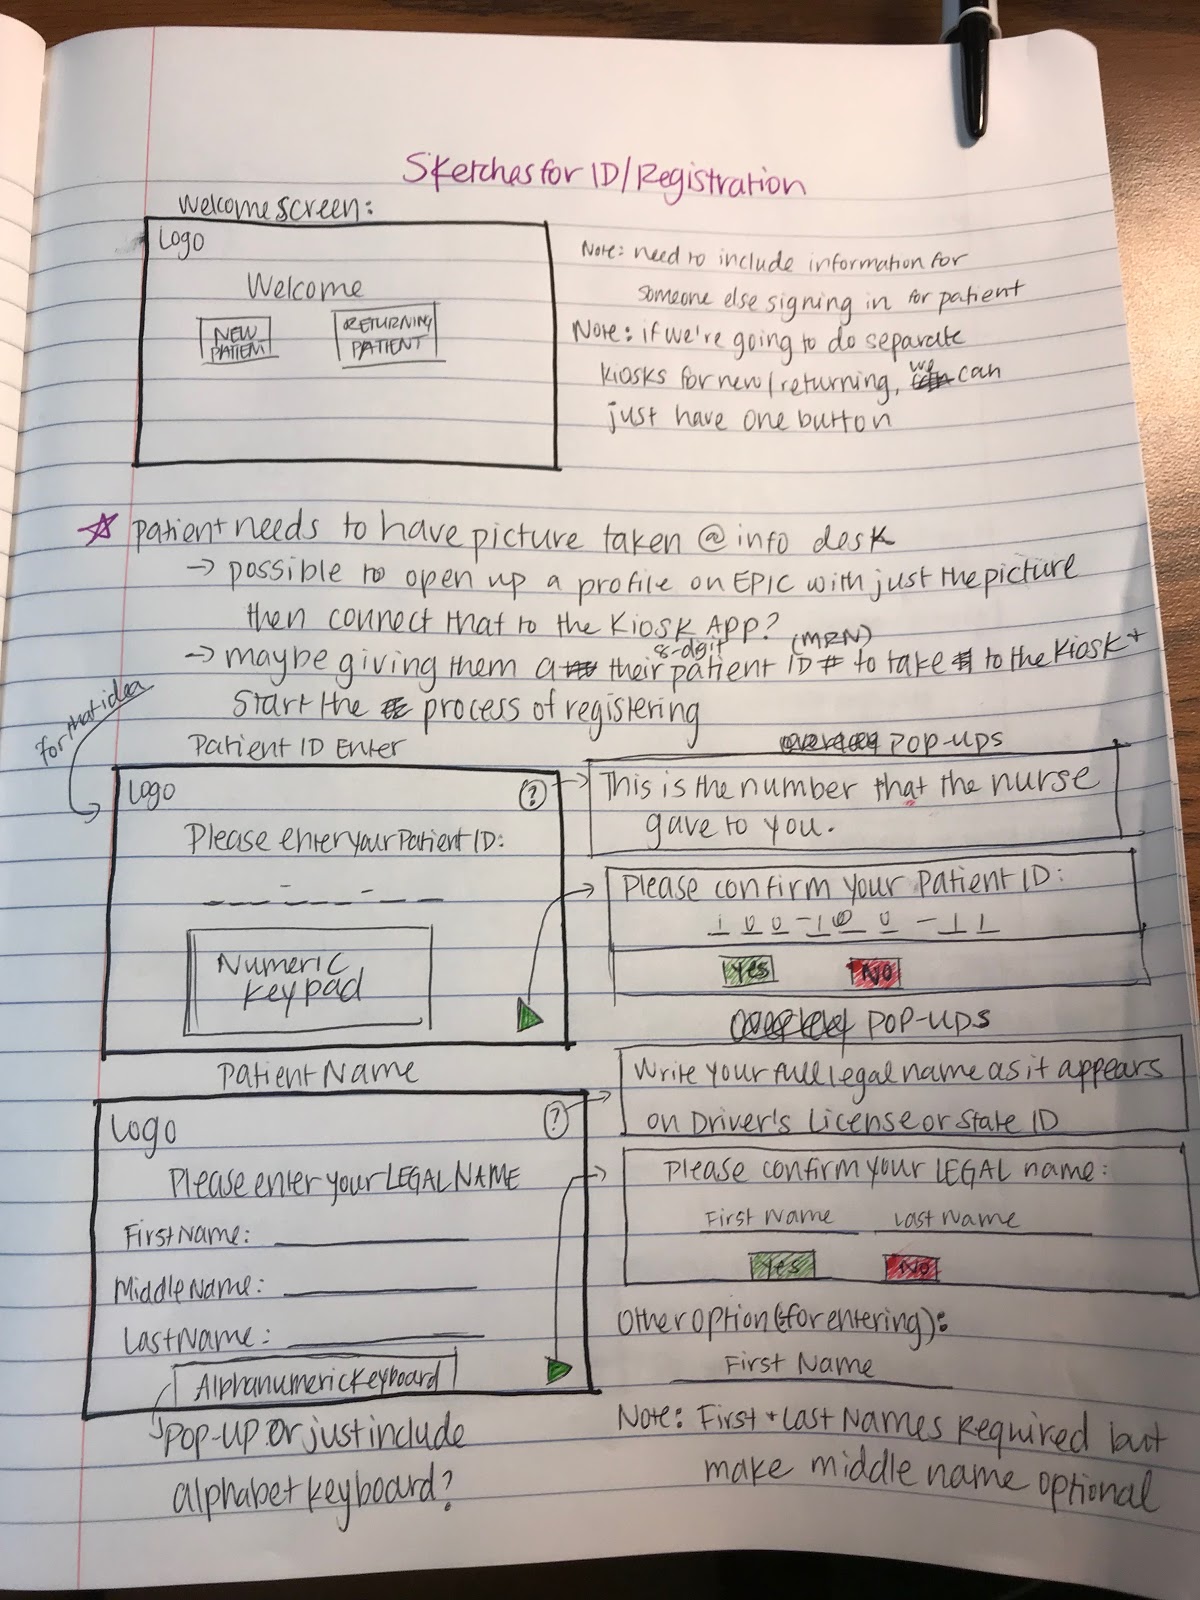 Sketches for ID/Registration
Welcome screen:
Logo
Welcome
NEW
PATIENT
RETURNING
PATIENT
Note: need to include information for
someone else signing in for patient
Note: if we're going to do separate
kiosks for new/returning, we can
just have one button
☆ Patient needs to have picture taken @ info desk
→ possible to open up a profile on EPIC with just the picture
then connect that to the Kiosk App?
→ maybe giving them their 8-digit patient ID # (MRN) to take to the kiosk +
start the process of registering
for that idea
Patient ID Enter
Logo
?
Please enter your Patient ID:
_ _ _ - _ _ _ - _ _
Numeric
keypad
POP-UPS
This is the number that the nurse
gave to you.
Please confirm your Patient ID:
1 0 0 - 1 0 0 - 1 1
Yes
No
Patient Name
Logo
?
Please enter your LEGAL NAME
First Name:
Middle Name:
Last Name:
Alphanumeric Keyboard
Pop-up or just include
alphabet keyboard?
POP-UPS
Write your full legal name as it appears
on Driver's License or State ID
Please confirm your LEGAL name:
First Name Last Name
Yes
No
Other option (for entering):
First Name
Note: First + Last Names Required but
make middle name optional